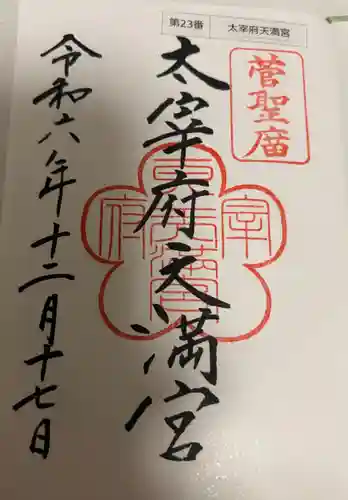 第23番 太宰府天満宮
菅聖廟
太宰府天満宮
令和六年十二月十七日